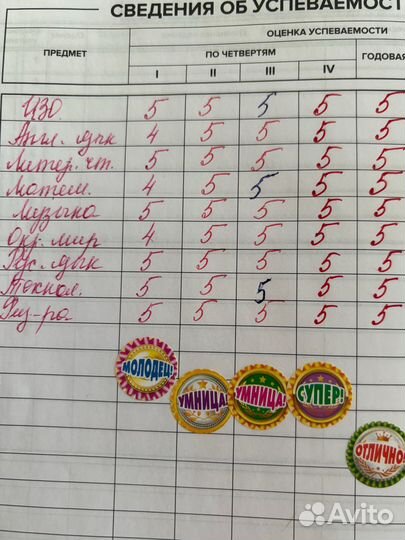 СВЕДЕНИЯ ОБ УСПЕВАЕМОСТ
ПРЕДМЕТ
ОЦЕНКА УСПЕВАЕМОСТИ
ПО ЧЕТВЕРТЯМ
ГОДОВАЯ
I II III IV
ИЗО. 5 5 5 5 5
Англ. язык 4 5 5 5 5
Литер. чт. 5 5 5 5 5
Матем. 4 5 5 5 5
Музыка 5 5 5 5 5
Окр. мир 4 5 5 5 5
Рус. язык 5 5 5 5 5
Технол. 5 5 5 5 5
Физ-ра 5 5 5 5 5
МОЛОДЕЦ!
УМНИЦА!
УМНИЦА!
СУПЕР!
ОТЛИЧНО
Avito